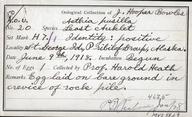 Oological Collection of J. Hooper Bowles
No. Aethia pusilla
No. 20 Species Least Auklet
Set Mark H 7/1 Identity: positive
St. George Ids, Pribilof Group, Alaska.
Date June 9th, 1918. Incubation Begun
No. of Eggs 1 Collected by Prof. Harold Heath
Remarks Egg laid on bare ground in
crevice of rock pile.